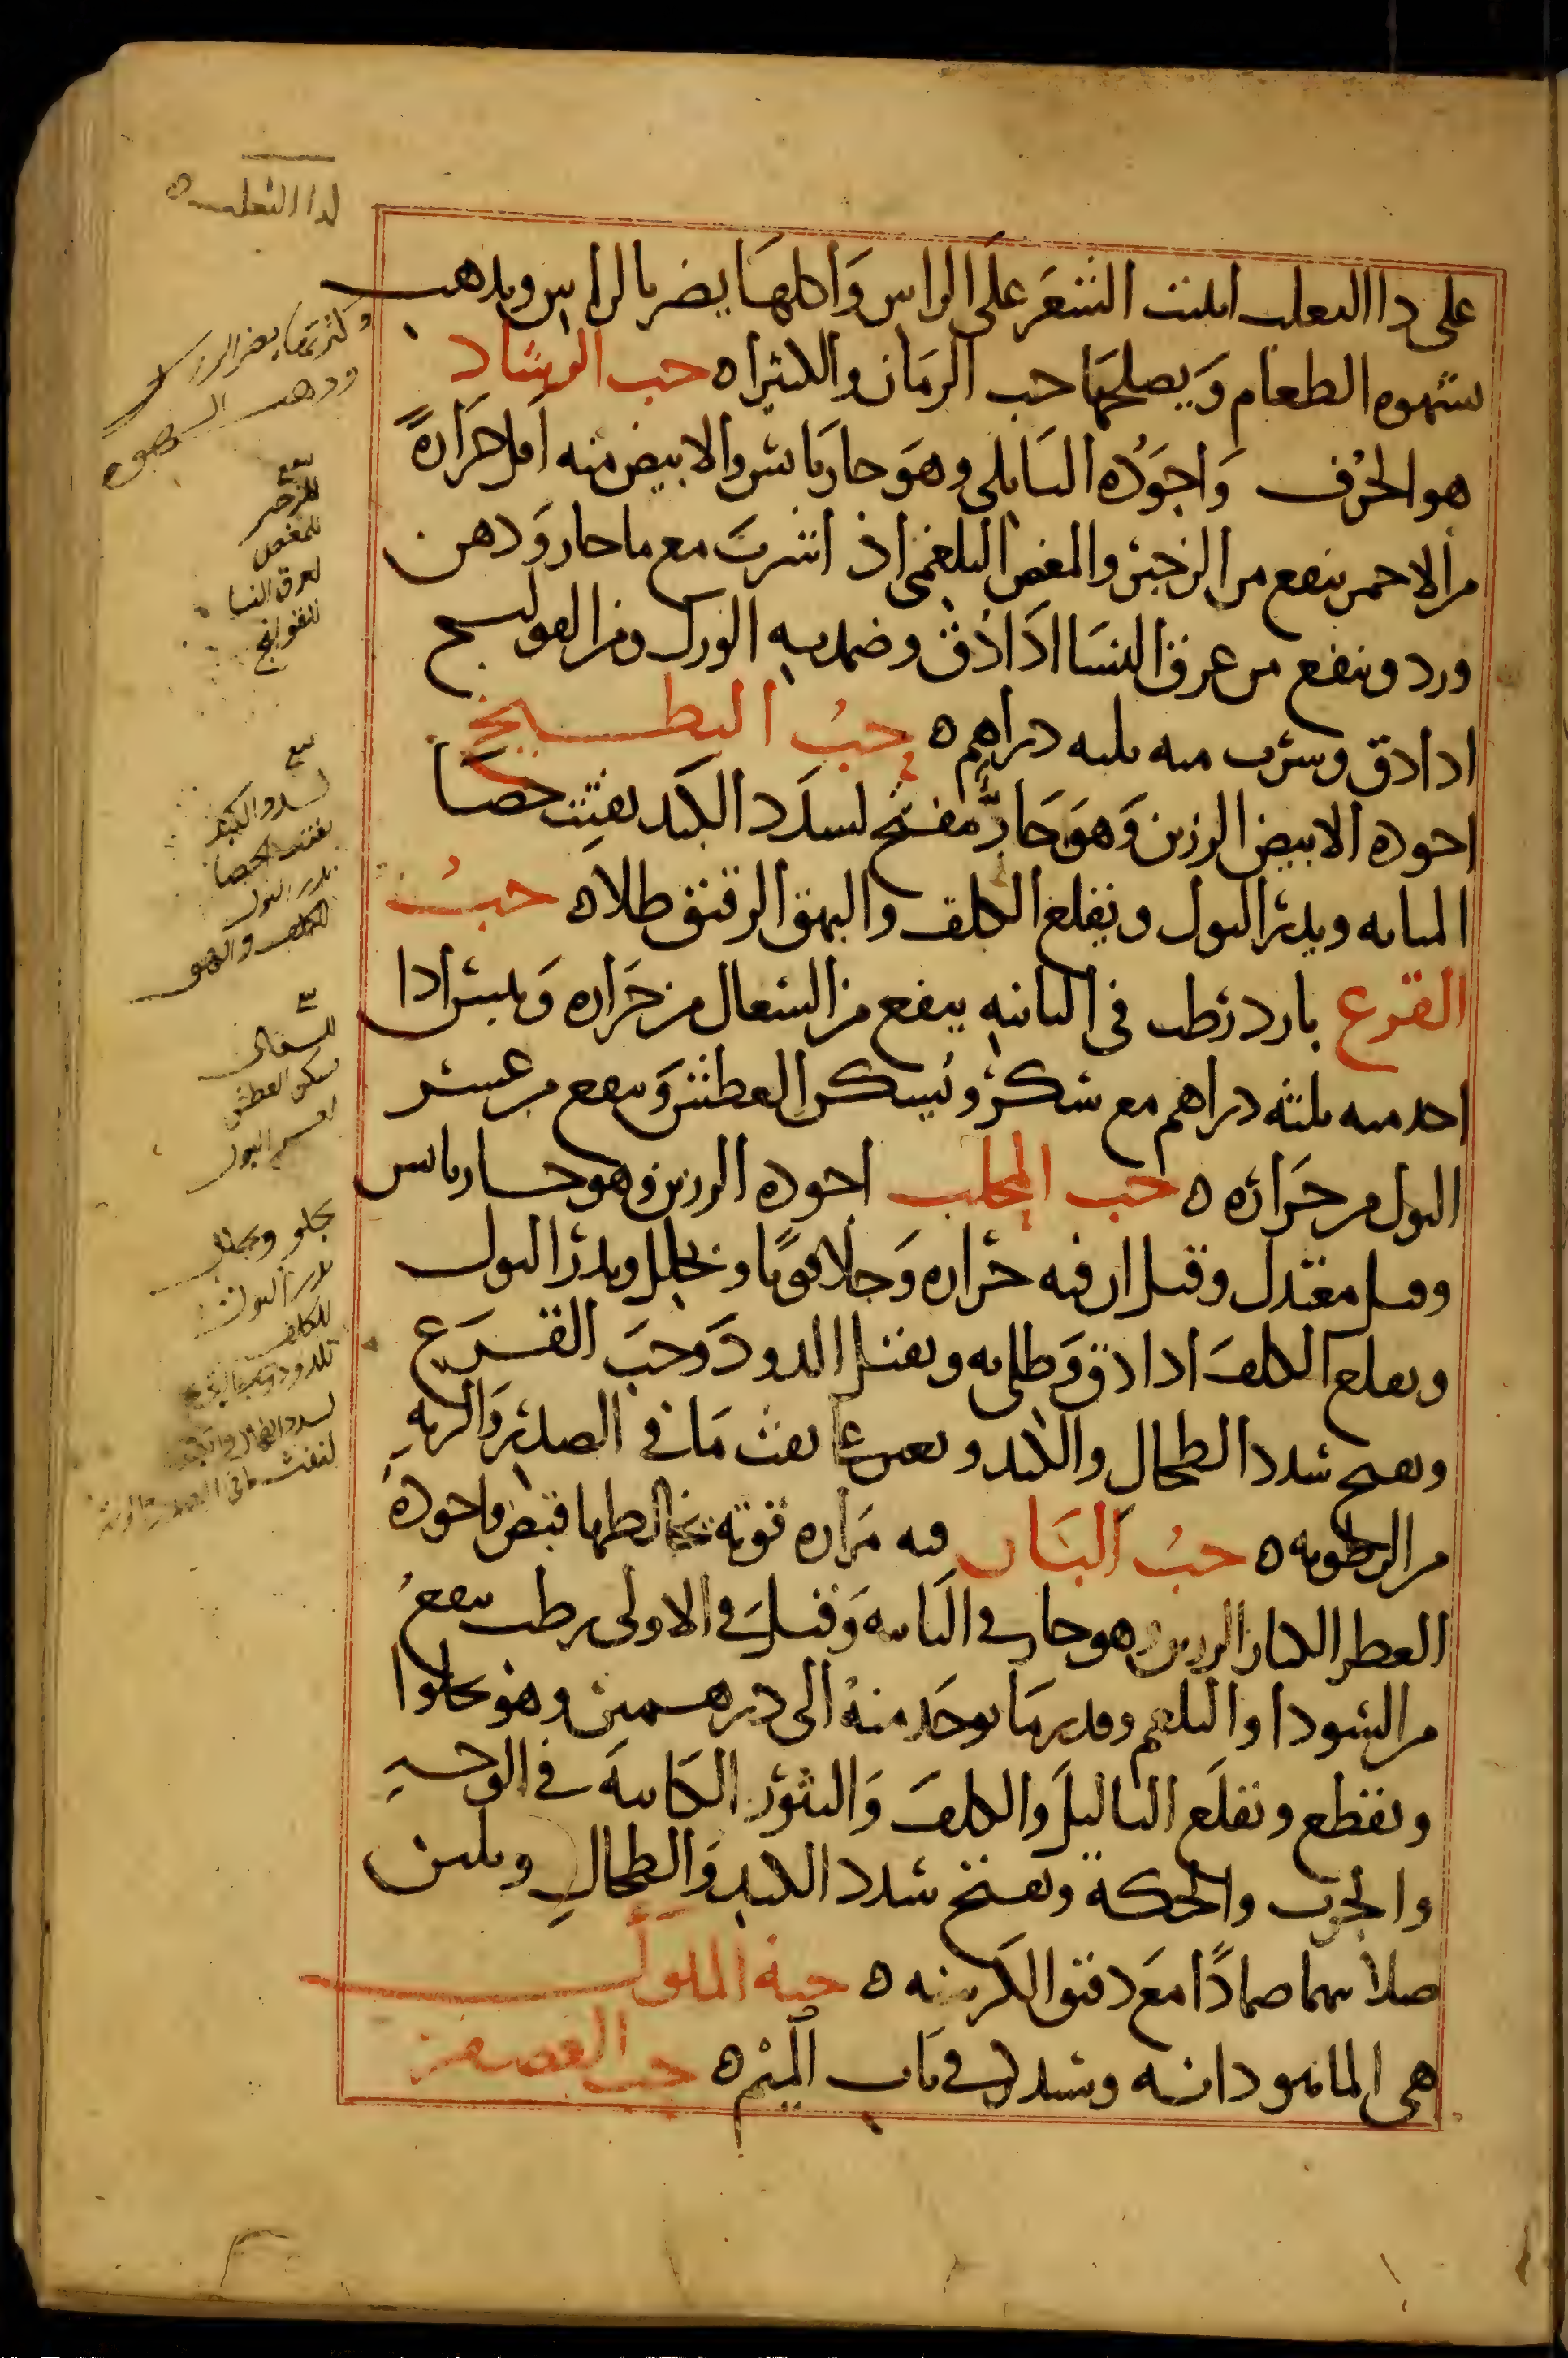 على داالثعلب انبتت الشعَر علَى الراس وَاكلهَا يضر بالراس ويذهب
بشهوه الطعام وَيصلحهَا حب الرمَان والكثيرا ه حب الرشاد
هو الحُرف وَاجوَدُه البَابلى وهوَ حار يابس والابيض منه اقل حَرَارةً
من الاحمر ينفع من الزحير والمغص البلغمى اذ اشربَ مع ما حار وَدهن
ورد وينفع من عرق النسَا اذَا دُق وضمد به الورك ومن القولنج
اذا دق وشرب منه ثلثه دراهم ه حبُ البطيخ
اجوده الابيض الرزين وَهوَ حَارٌّ مفتح لسدَد الكبَد يفتِت حصَا
المثانه ويدر البول ويقلع الكلف والبهق الرقيق طلاه حبُ
القرع بارد رَطب فى الثانيهِ ينفع من السعال من حَراره وَيبس اذا
اخذ منه ثلثه دراهم مع سكر وَيسكن العطش وَينفع من عسر
البول من حَراره ه حب المحلب اجوده الرزين وهو حار يابس
وقيل معتدل وقيل ان فيه حَراره وَجلا قويًا ويحلل ويدر البول
ويقلع الكلفَ اذا دق وَطلى به ويقتل الدود وَحبَ القرَع
ويفتح سدد الطحال والكبد ويعين عَلى نفث مَا فى الصدر وَالريهِ
من الرطوبه ه حبُ البَان فيه مَراره قويه يخالطها قبض واجودهُ
العطر الكبار الرزين وهو حار فى الثانيه وَقيلَ فى الاولى رطب ينفعُ
من السودا والبلغم وقدر مَا يوخَذ منهُ الى درهمين وهو يجلوا
ويقطع ويقلَع الثاليل وَالكلفَ وَالبثوُر الكَاينَة فى الوجهِ
والجرب والحكة ويفتح سدد الكبدِ وَالطحالِ ويلين
صلابتهما ضمادًا معَ دقيق الكرسنه ه حبة الملوك
هى الماهودانه وستذكر فى بَاب الميم ه حب العصفر
لداا الثعلب ه
وكثرتها يضر الراس
وىذهب الشهوه
ينفع
للزحير
للمغص
لعرق النسا
للقولنج
ينفع
لسدد الكبد
يفتت الحصا
يدر البول
للكلف والبهق
للسعال
يسكن العطش
لعسر البول
يجلو ويحلل
يدر البول
للكلف
للدود وحب القرع
لسدد الطحال والكبد
لنفث ما فى الصدر والريه